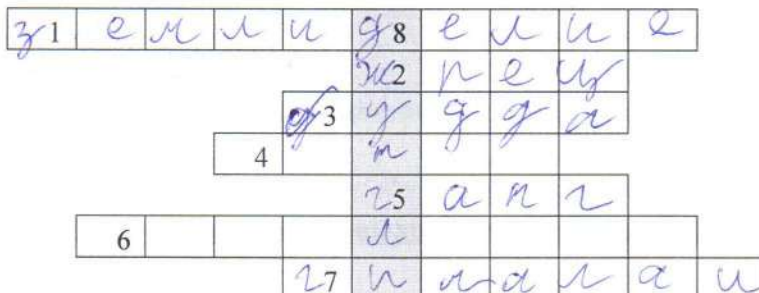 з1 е м л и д8 е л и е
ж2 р е ц
б3 у д д а
4 н
г5 а н г
6 л
г7 и м а л а и